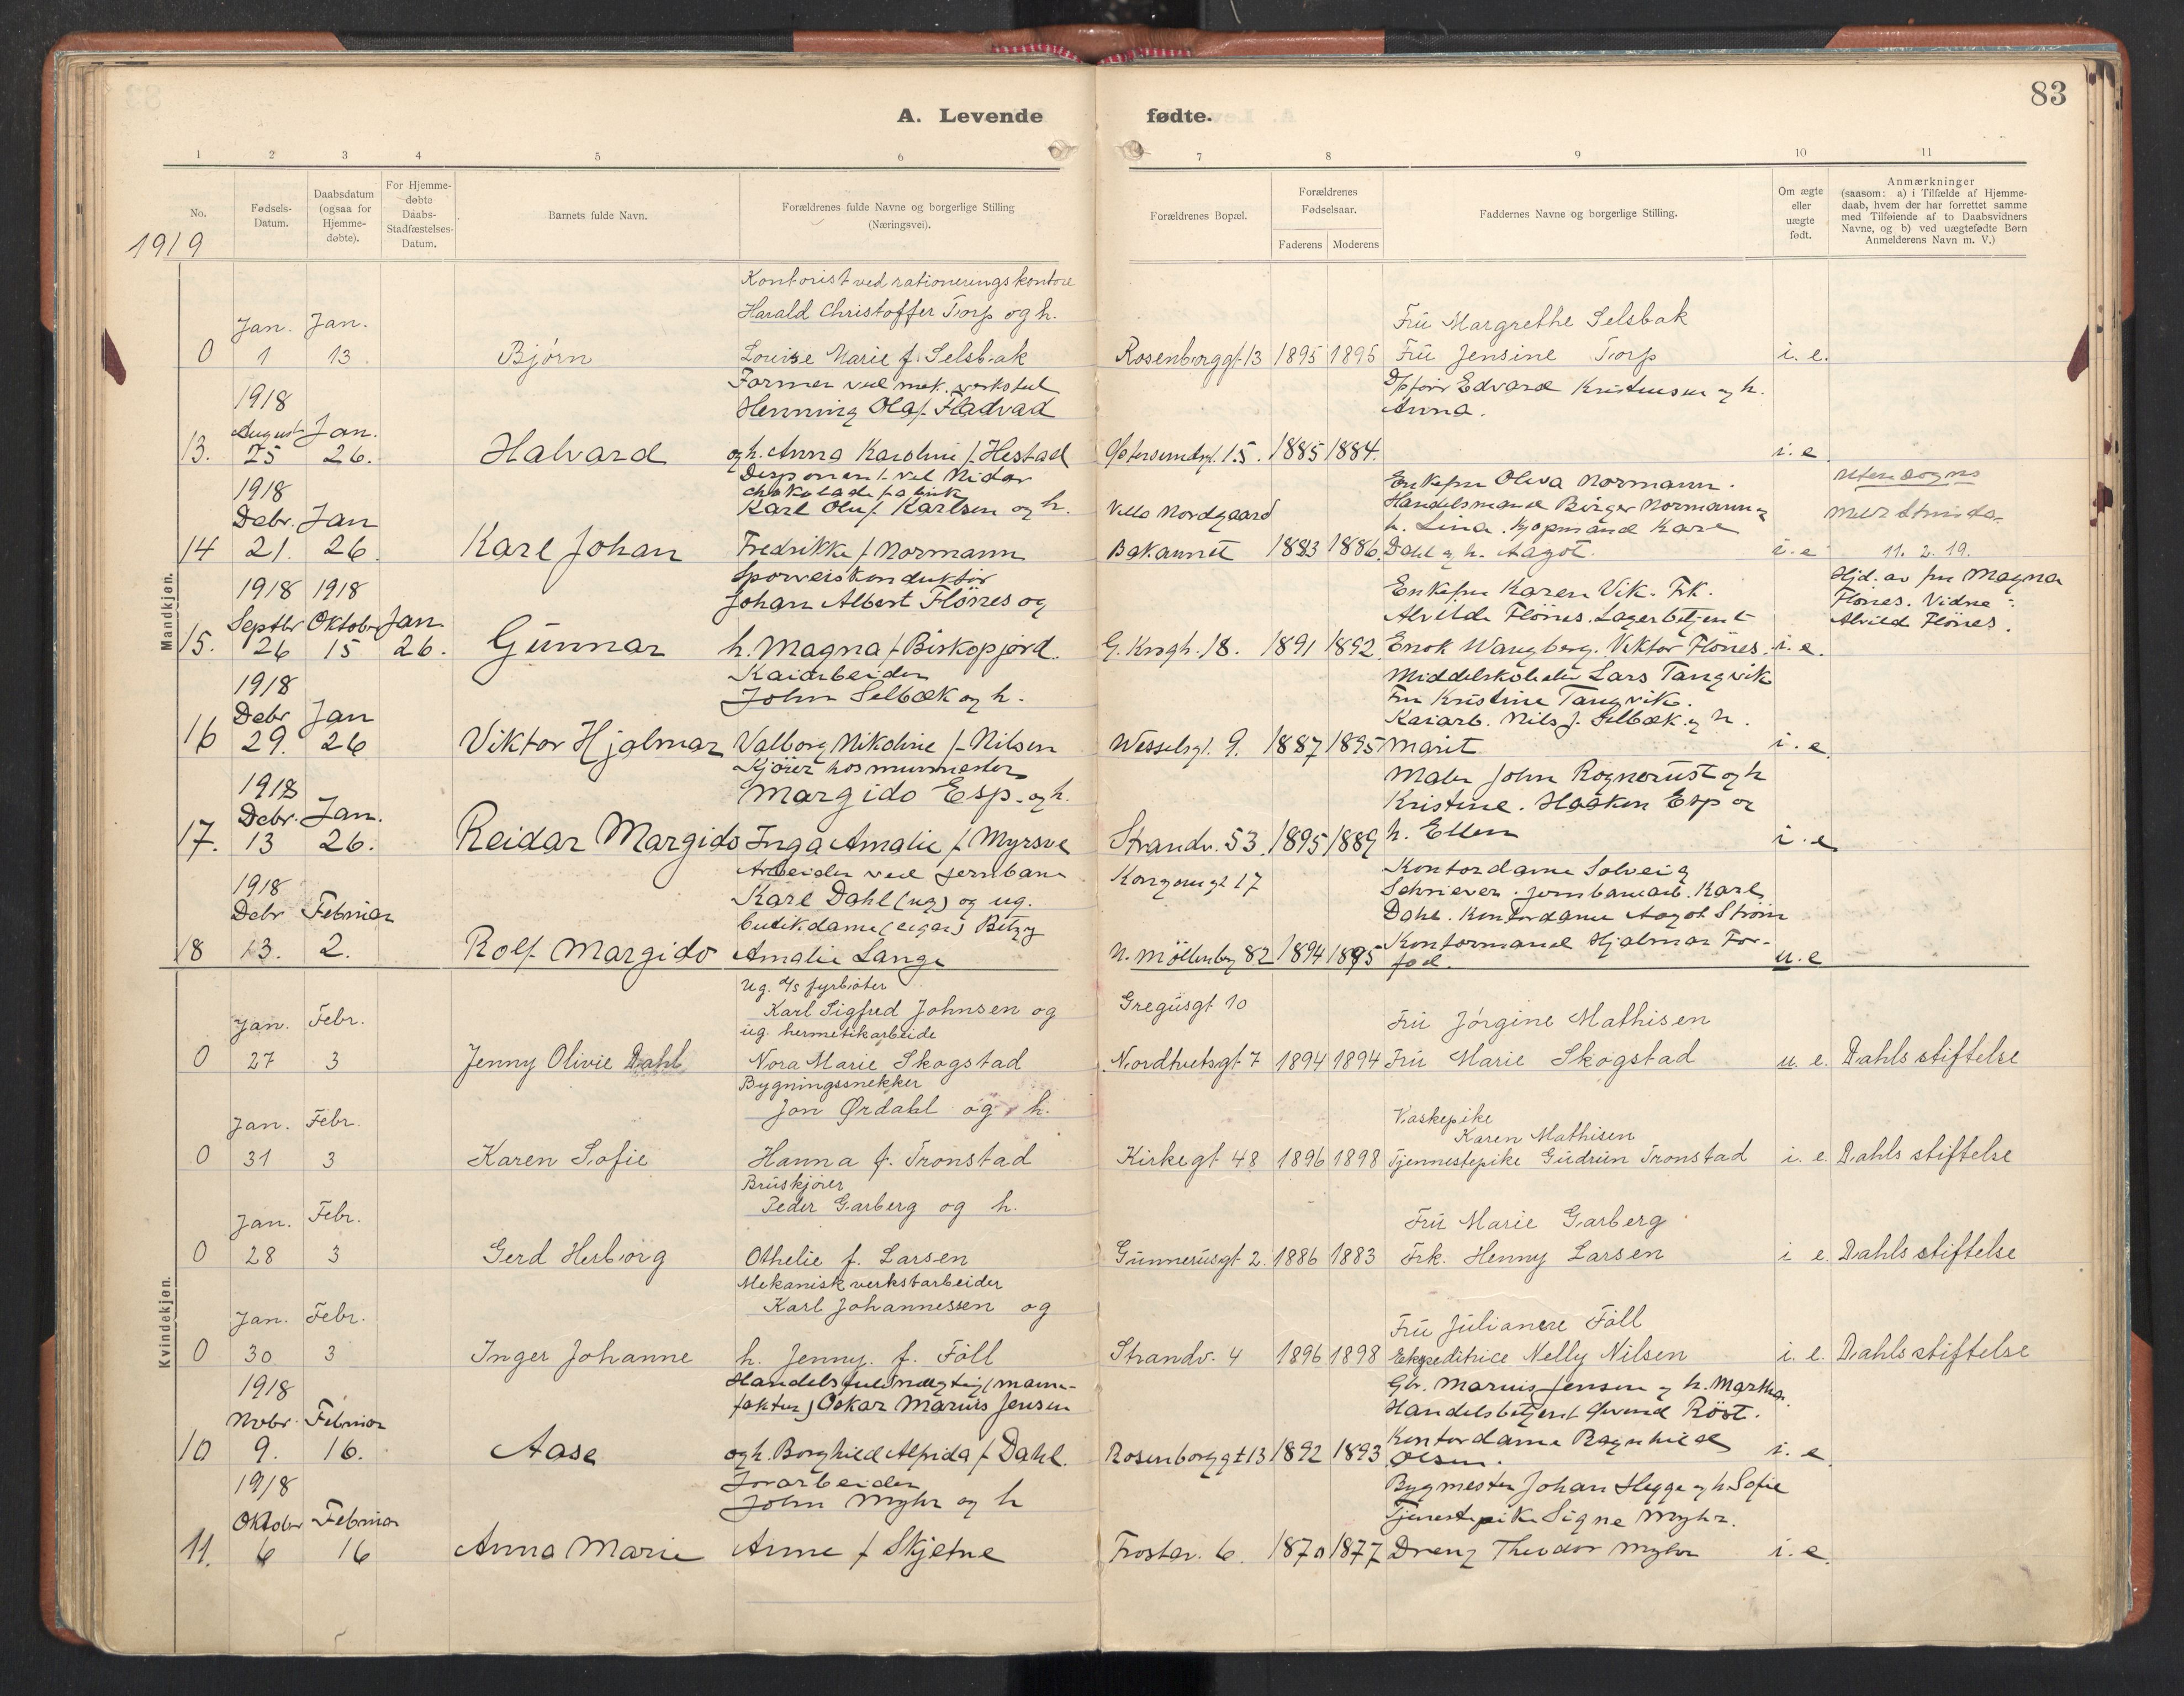 83
A. Levende fødte.
1 2 3 4 5 6 7 8 9 10 11
No.
Fødsels-Datum.
Daabsdatum (ogsaa for Hjemme-døbte).
For Hjemme-døbte Daabs-Stadfæstelses-Datum.
Barnets fulde Navn.
Forældrenes fulde Navne og borgerlige Stilling (Næringsvei).
Forældrenes Bopæl.
Forældrenes Fødselsaar.
Faderens Moderens
Faddernes Navne og borgerlige Stilling.
Om ægte eller uægte født.
Anmærkninger (saasom: a) i Tilfælde af Hjemme-daab, hvem der har forrettet samme med Tilføiende af to Daabsvidners Navne, og b) ved uægtefødte Børn Anmelderens Navn m. V.)
1919
Mandkjøn.
Kontorist ved rationeringskontore
Jan. Jan. Harald Christoffer Torp og h. Fru Margrethe Selsbak
0 1 13. Bjørn Louise Marie f. Selsbak Rosenborggt 13 1895 1895 Fru Jensine Torp i. e.
Former ved mek. verksted
1918 Henning Olaf Fladvad Edvard Kristensen og h. Anna.
August Jan.
13. 25 26. Halvard og h. Anna Karoline f. Hestad 15. 1885 1884. i. e
Disponent ved Nidar chokoladefabrik
1918 Karl Oluf Karlsen og h. Enkefru Oliva Normann.
Debr. Jan Vello Nordgaard Handelsmand Birger Normann og h. Lina. Kjøpmand Kare
14 21. 26. Karl Johan Fredrikke f Normann Bakaunet 1883 1886. Dahl og h. Aagot. i. e 11. 2. 19.
Sporveiskonduktør
1918 1918 Johan Albert Flönes og Enkefru Karen Vik. Frk. Hjd. av fru Magna
Septbr Oktobr Jan Alvilde Flönes. Lagerbetjent Flönes. Vidne:
15. 26 15 26. Gunnar h. Magna f Biskopjord. G. Krogh. 18. 1891 1892 Enok Wangberg. Viktor Flönes. i. e. Alvild Flönes.
Kaiarbeider
1918 John Selbæk og h. Lars Tangvik
Debr Jan Fru Kristine Tangvik. Kaiarb. Nils J. Selbæk og h.
16 29. 26 Viktor Hjalmar Valborg Nikoline f. Nilsen Wesselsgt. 9. 1887 1895 Marit i. e
Kjører hos murmester
1918 Margido Esp. og h. Maler John Rognerust og h
Debr. Jan. Kristine. Haaken Esp og
17. 13 26. Reidar Margido Inga Amalie f Myrsve Strandv. 53. 1895 1889 h. Ellen i. e
Arbeider ved jernbane Kontordame Solveig
1918 Karl Dahl (ug) og ug. Kongensgt 17 Schriever. Jernbanearb. Karl
Debr Februar Butikdame (cigar) Betzy Dahl. Kontordame Aagot Strøm
18 13. 2. Rolf Margido Amalie Lange N. Möllenbg 82 1894 1895 Kontormand Hjalmar Forfod. u. e
Kvindekjøn.
ug. d/s fyrbøter
Jan. Febr. Karl Sigfred Johnsen og Gregusgt 10 Fru Jørgine Mathisen
ug. hermetikarbeide
0 27 3 Jenny Olivie Dahl Nora Marie Skogstad Nordtvetsgt 7 1894 1894 Fru Marie Skogstad u. e. Dahls stiftelse
Bygningssnekker
Jan. Febr. Jon Ørdahl og h. Vaskepike Karen Mathisen
0 31 3 Karen Sofie Hanna f. Tronstad Kirkegt 48 1896 1898 Tjennestepike Gudrun Tronstad i. e. Dahls stiftelse
Bruskjører
Jan. Febr. Peder Garberg og h. Fru Marie Garberg
0 28 3 Gerd Herborg Othelie f. Larsen Gunnerusgt 2. 1886 1883 Frk. Henny Larsen i e. Dahls stiftelse
Mekanisk verkstarbeider
Jan. Febr. Karl Johannessen og Fru Julianere Föll
0 30 3 Inger Johanne h. Jenny. f. Föll Strandv. 4 1896 1898 Ekspeditrice Nelly Nilsen i. e. Dahls stiftelse
1918 Handelsfuldmægtig (manufaktur) Oskar Marius Jensen Marius Jensen og h. Martha.
Novbr. Februar Handelsbetjent Röst.
10 9. 16. Aase og h. Borghild Alfrida f Dahl. Rosenborggt 13 1892 1893 Kontordame Ragnhild Olsen. i. e
1918 Jordarbeider Bygmester Johan Hegge og h. Sofie
Oktobr Februar John Myhr og h Tjenestepike Signe Myhr.
11. 6 16 Anna Marie Anne f Skjetne Frostav. 6. 1870 1877 Dreng Theodor Myhr i. e.